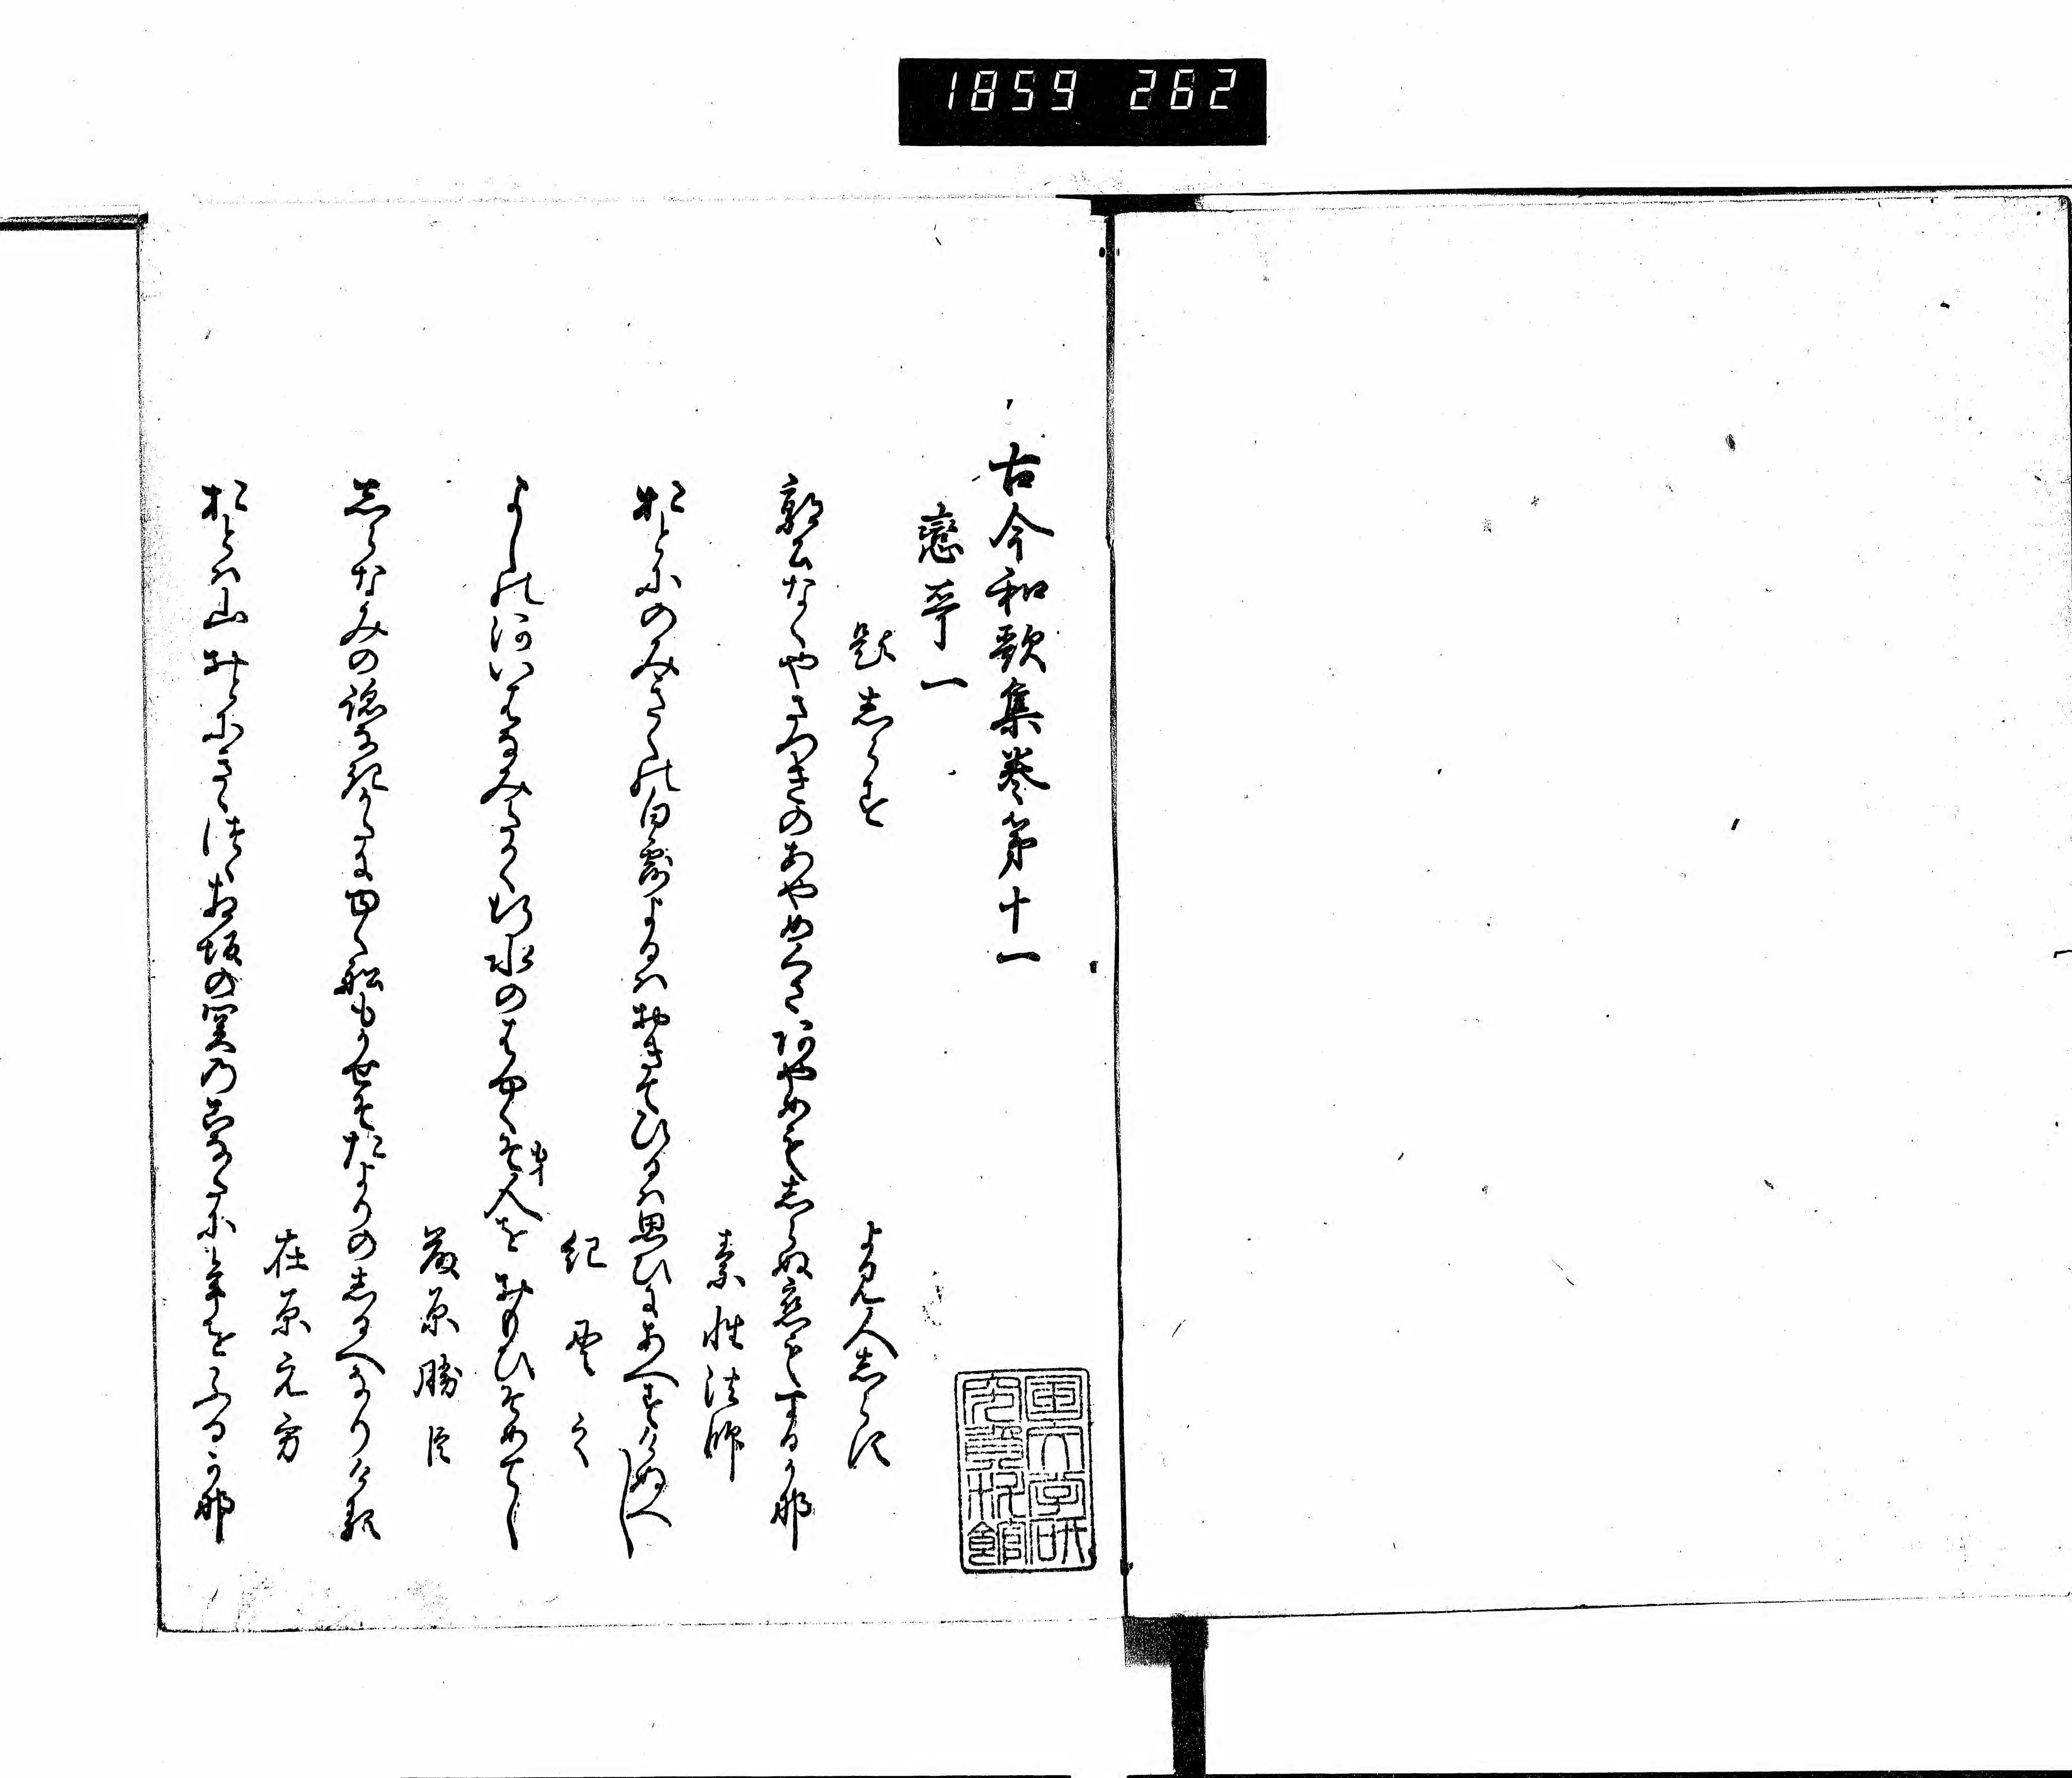 1859 262
古今和歌集巻第十一
戀哥一
題志らす
よみ人志らす
郭公なくやさつきのあやめくさあやめも志らぬ恋もするか那
素性法師
おとにのみきくの白露よるハおきてひるハ思ひにあへすけぬへし
紀貫之
よしの河いはなみたかく行水のはやくそ人をおもひそめてし
藤原勝臣
志らなみの跡なきかたにゆく船もかせそたよりの志るへなりける
在原元方
おとハ山おとにきゝつゝ相坂の関乃こなたに年をふるか那
国文学研究資料館